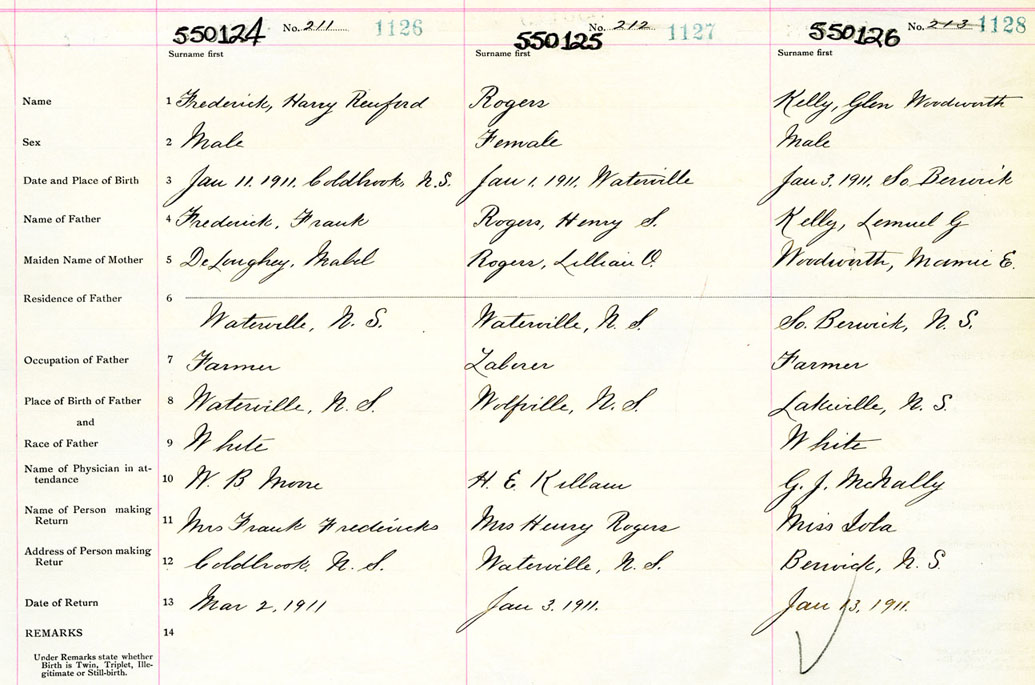 550124 No. 211 1126 550125 No. 212 1127 550126 No. 213 1128
Surname first Surname first Surname first
Name 1 Frederick, Harry Renford Rogers Kelly, Glen Woodworth
Sex 2 Male Female Male
Date and Place of Birth 3 Jan 11. 1911. Coldbrook, N.S. Jan 1, 1911. Waterville Jan 3. 1911. So. Berwick
Name of Father 4 Frederick, Frank Rogers, Henry S. Kelly, Lemuel G
Maiden Name of Mother 5 DeLoughey, Mabel Rogers, Lillian O. Woodworth, Mamie E.
Residence of Father 6
Waterville, N. S. Waterville, N. S. So. Berwick, N. S.
Occupation of Father 7 Farmer Laborer Farmer
Place of Birth of Father 8 Waterville, N. S. Wolfville, N. S. Lakeville, N. S.
and
Race of Father 9 White White
Name of Physician in at-
tendance 10 W. B Moore H. E. Killam G. J. McNally
Name of Person making
Return 11 Mrs Frank Fredericks Mrs Henry Rogers Miss Iola
Address of Person making
Retur 12 Coldbrook, N. S. Waterville, N. S. Berwick, N. S
Date of Return 13 Mar 2, 1911 Jan 3. 1911. Jan 13, 1911.
REMARKS 14
Under Remarks state whether
Birth is Twin, Triplet, Ille-
gitimate or Still-birth.